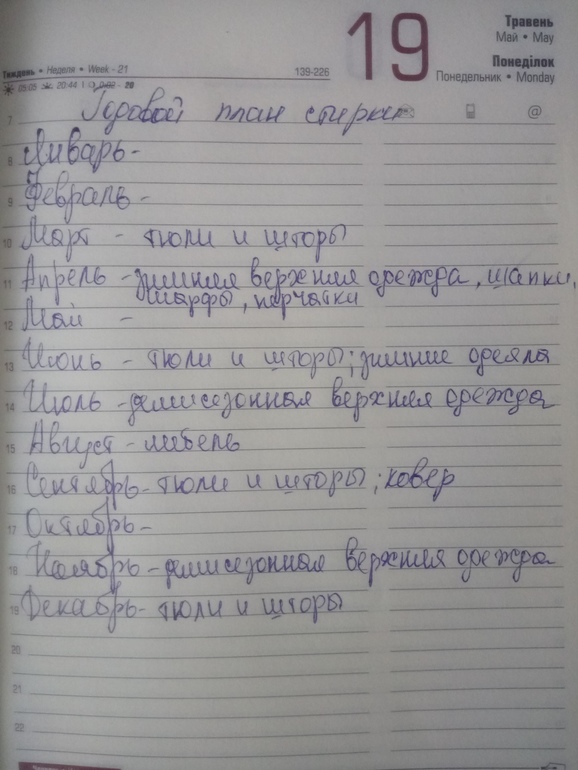 19
Травень
Май • May
Понеділок
Понедельник • Monday
Тиждень • Неделя • Week - 21
139-226
05:05 20:44
20
7 Годовой план стирки @
8 Январь -
9 Февраль -
10 Март - тюли и шторы
11 Апрель - зимняя верхняя одежда, шапки,
шарфы, перчатки
12 Май -
13 Июнь - тюли и шторы; зимние одеяла
14 Июль - демисезонная верхняя одежда
15 Август - мебель
16 Сентябрь - тюли и шторы; ковер
17 Октябрь -
18 Ноябрь - демисезонная верхняя одежда
19 Декабрь - тюли и шторы
20
21
22